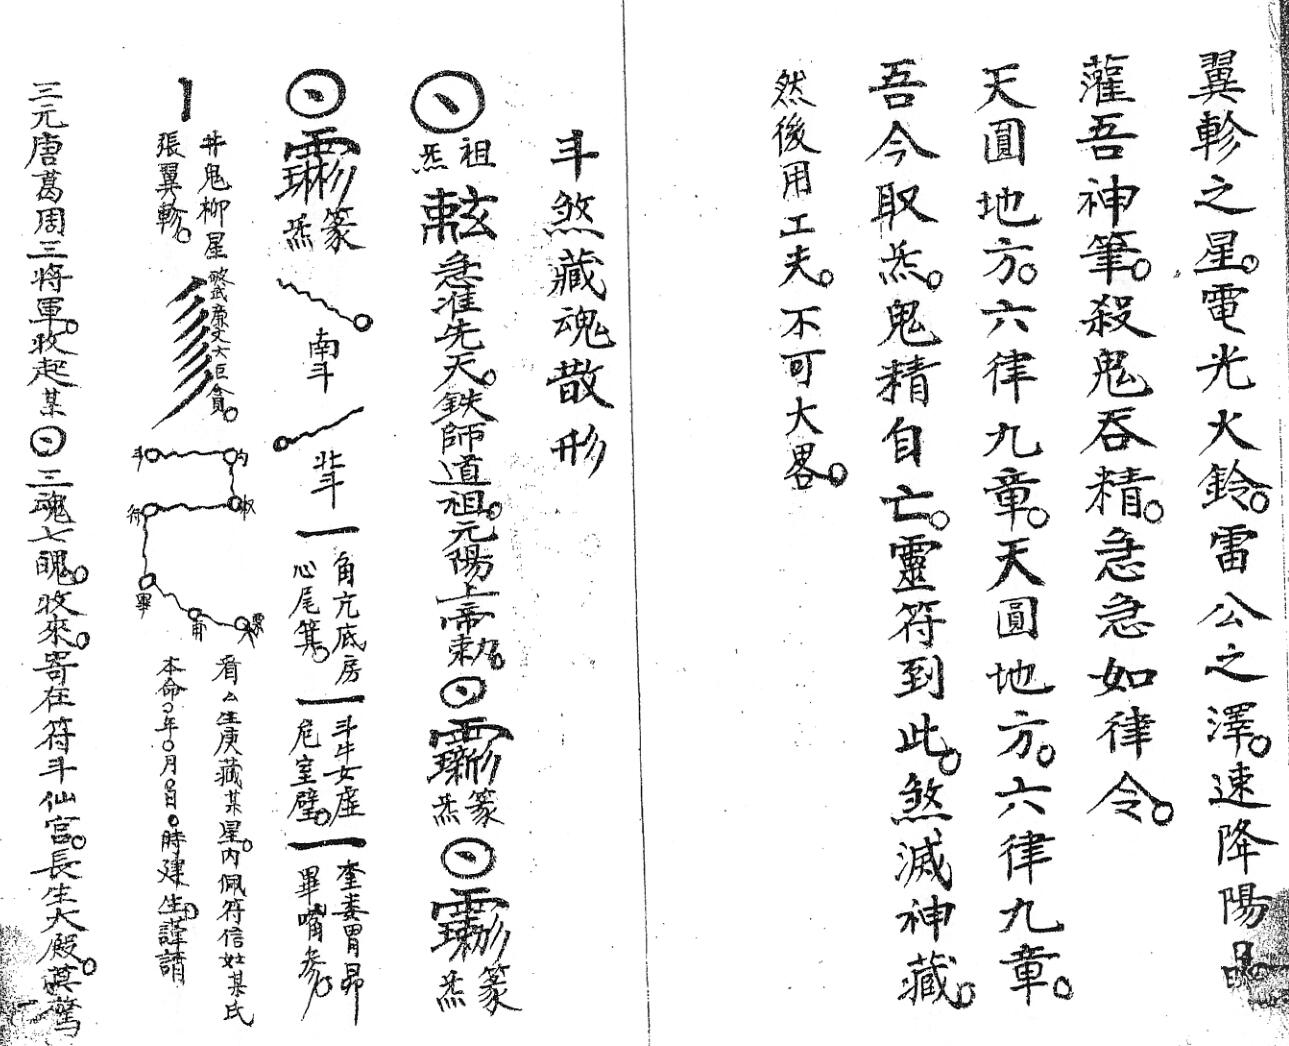 翼軫之星。電光火鈴。雷公之澤。速降陽
灌吾神筆。殺鬼吞精。急急如律令。
天圓地方。六律九章。天圓地方。六律九章。
吾今取炁。鬼精自亡。靈符到此。煞滅神藏。
然後用工夫。不可大畧。
斗煞藏魂散形
祖炁
急准先天。鉄師道祖。元陽上帝勅。
炁篆
炁篆
炁篆
南斗
北斗
角亢底房
心尾箕。
斗牛女虛
危室壁。
奎婁胃昴
畢嘴參。
井鬼柳星
張翼軫。
破武廉文大巨貪。
看厶生庚藏某星。内佩符信女某氏
本命〇年〇月〇日〇時建生。謹請
三元唐葛周三將軍。收起某
三魂七魄。收來。寄在符斗仙宮。長生大殿。莫驚